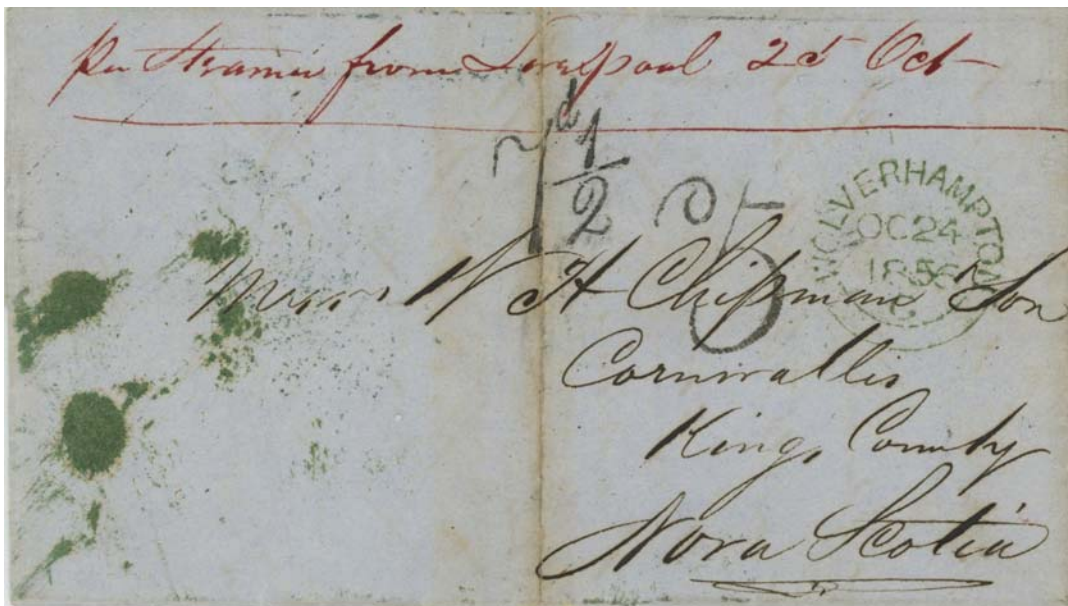 per Steamer from Liverpool 25 Oct
7d 1/2
WOLVERHAMPTON
OC 24
1856
Messrs W H Chipman & Son
Cornwallis
Kings County
Nova Scotia